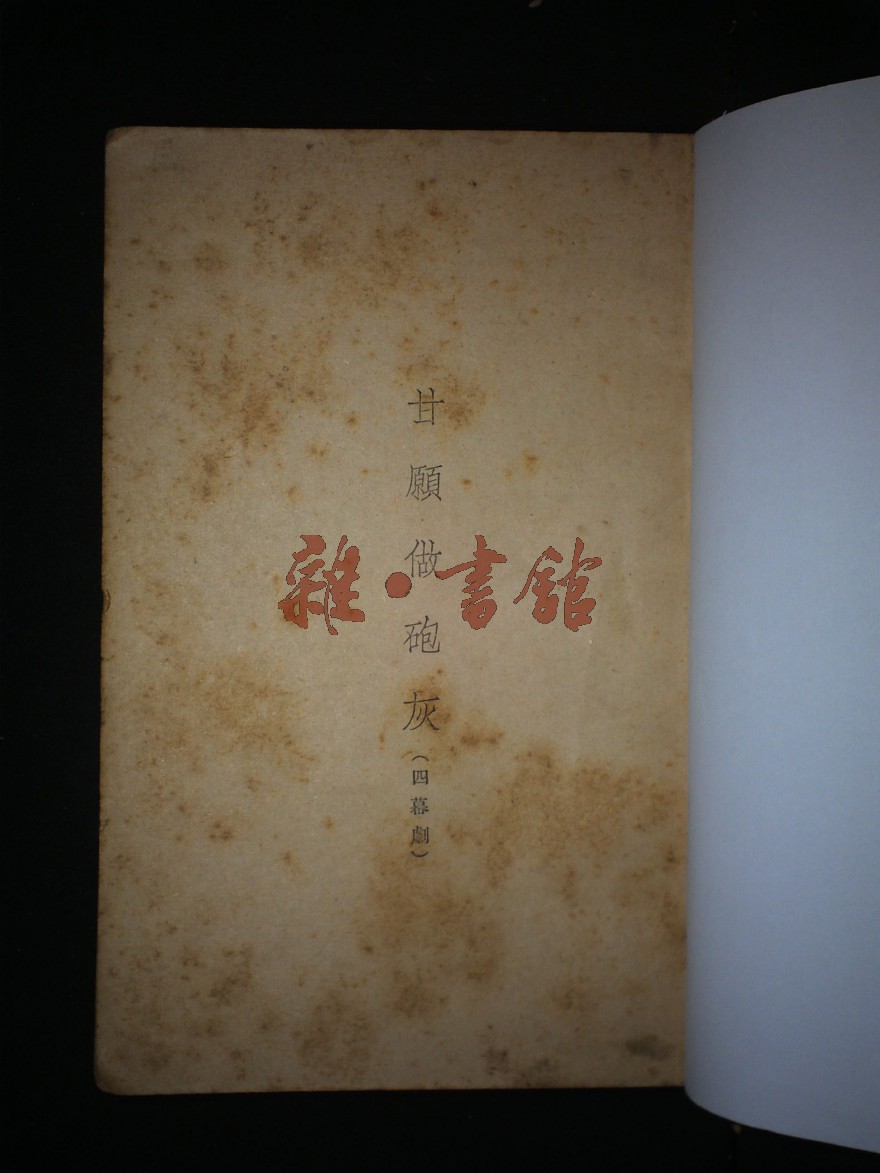 甘願做砲灰
（四幕劇）
雜·書館